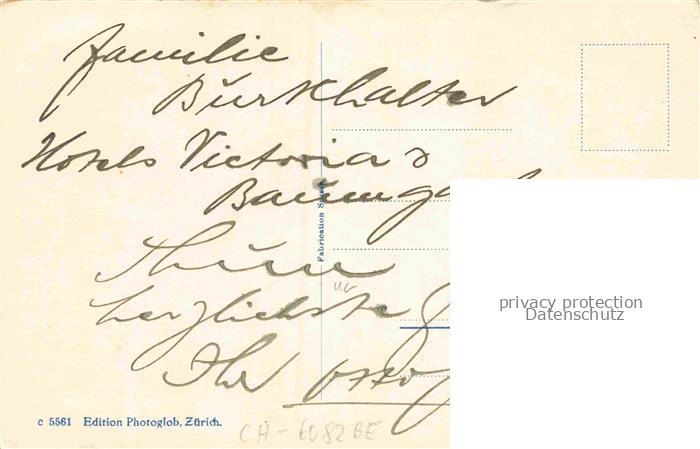 Familie
Burkhalter
Hotels Victoria &
Baumg
Thun
herzlichste
Ihr Otto
Fabrication Suisse
privacy protection
Datenschutz
c 5561 Edition Photoglob, Zürich.
CH-6082BE